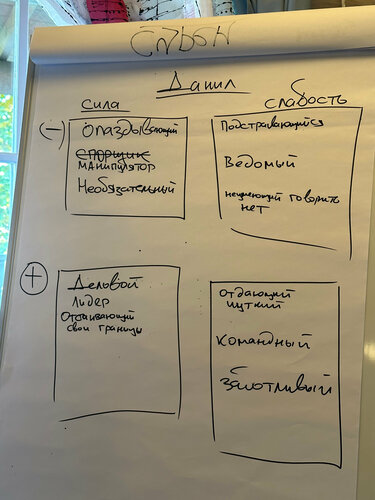 Данил
сила
слабость
(−)
опаздывающий
спорщик
манипулятор
Необязательный
Подстраивающийся
Ведомый
неумеющий говорить
нет
(+)
Деловой
Лидер
Отстаивающий
свои границы
Отдающий
чуткий
Командный
Заботливый